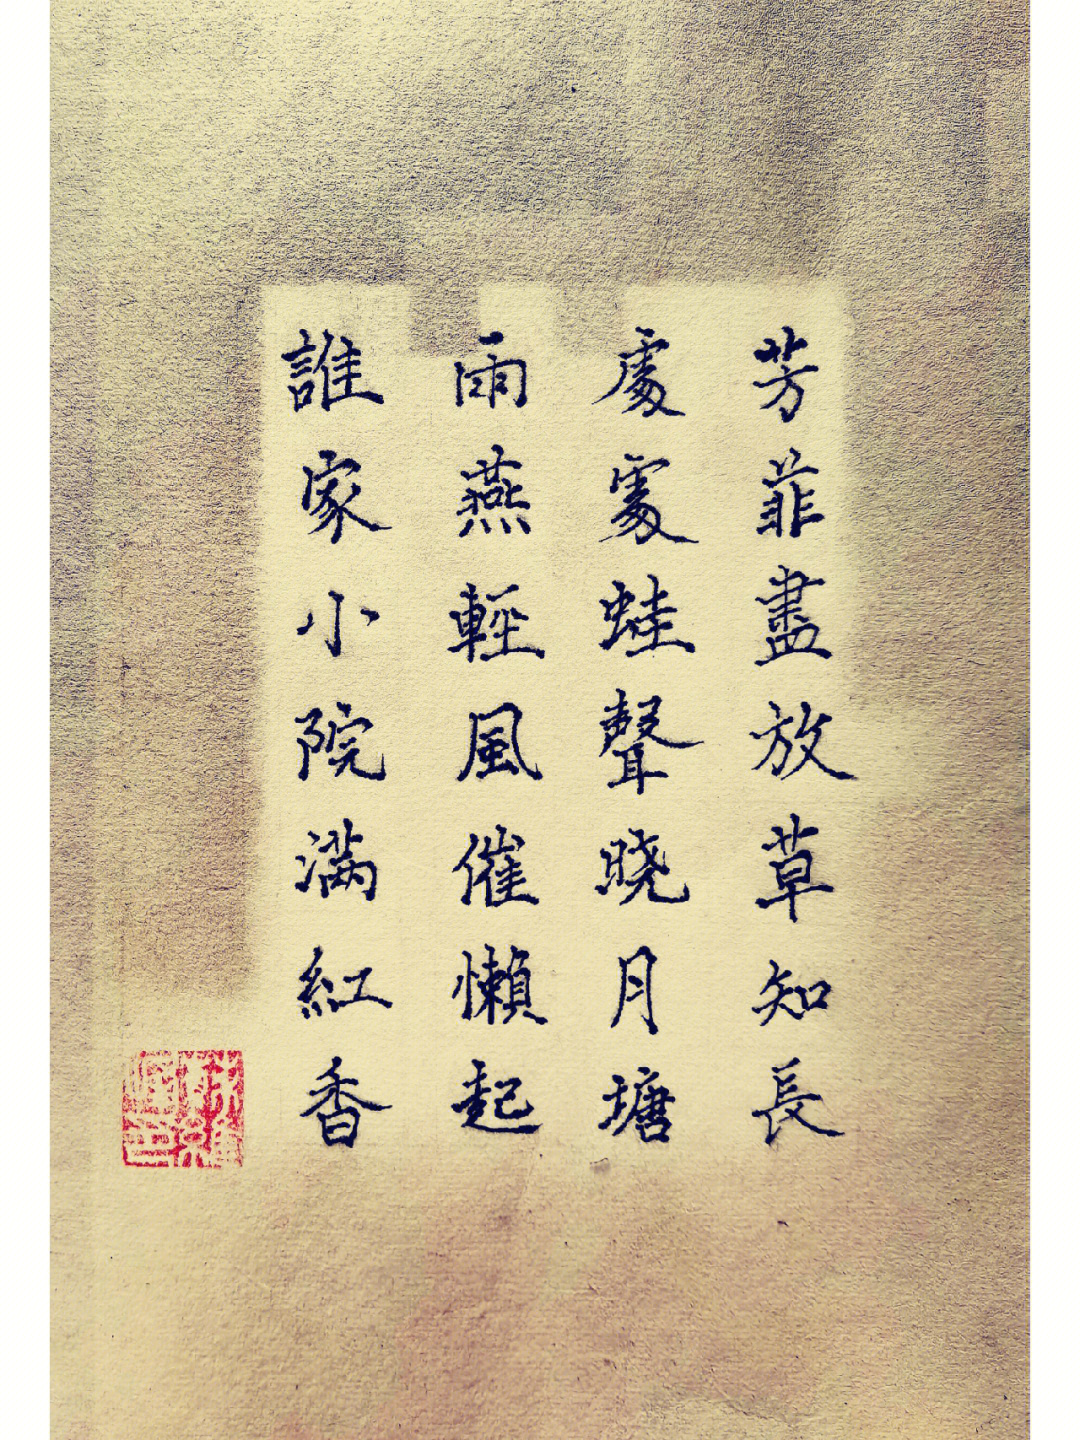 芳菲盡放草知長
處處蛙聲晓月塘
雨燕輕風催懶起
誰家小院滿紅香